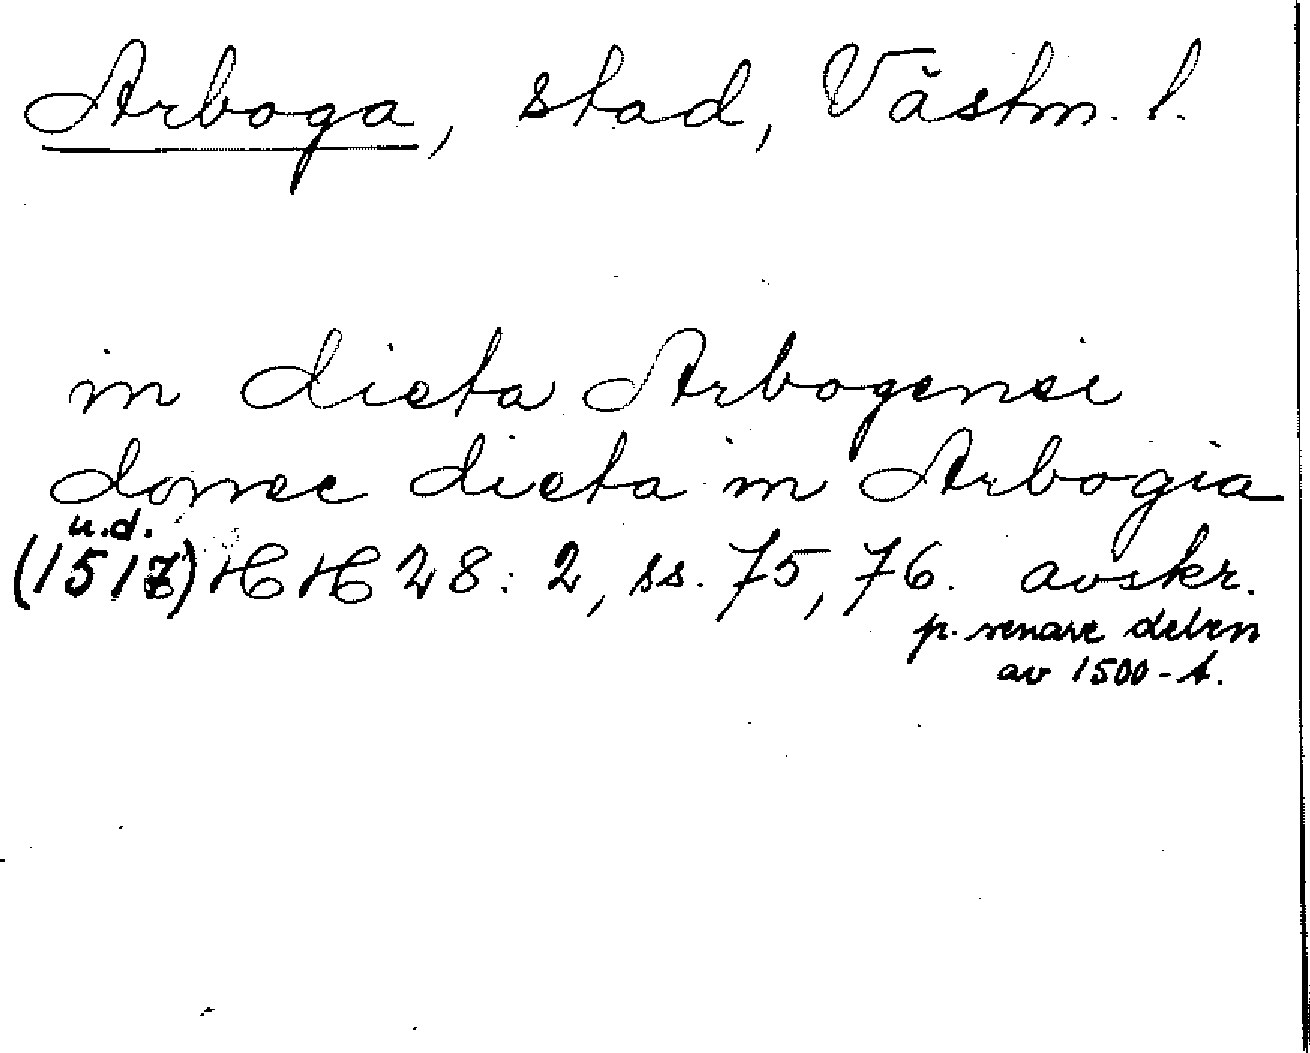 Arboga, stad, Västm. l.
in dieta Arbogensi
donec dieta in Arbogia
u.d.
(1517) HH 28: 2, ss. 75, 76. avskr.
p. senare delen
av 1500-t.